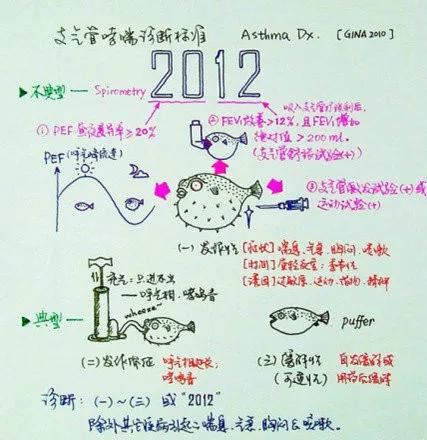 支气管哮喘诊断标准 Asthma Dx. [GINA 2010]
2012
▶不典型 — Spirometry
吸入支气管扩张剂后,
① PEF 昼夜变异率≥20%
② FEV₁改善>12%,且FEV₁增加
绝对值>200ml.
(支气管舒张试验(+))
PEF(呼气峰流速)
③支气管激发试验(+)或
运动试验(+)
(一)发作性
[症状]喘息、气急、胸闷、咳嗽
[时间]昼轻夜重;季节性
[诱因]过敏原、运动、
充气:只进不出
— 呼气相、哮鸣音
wheeze~
▶典型 —
puffer
(二)发作体征 呼气相延长;
哮鸣音
(三)缓解性 自发缓解或
(可逆性) 用药后缓解
诊断:(一)~(三) 或 "2012"
除外其它疾病引起之喘息、气急、胸闷及咳嗽。